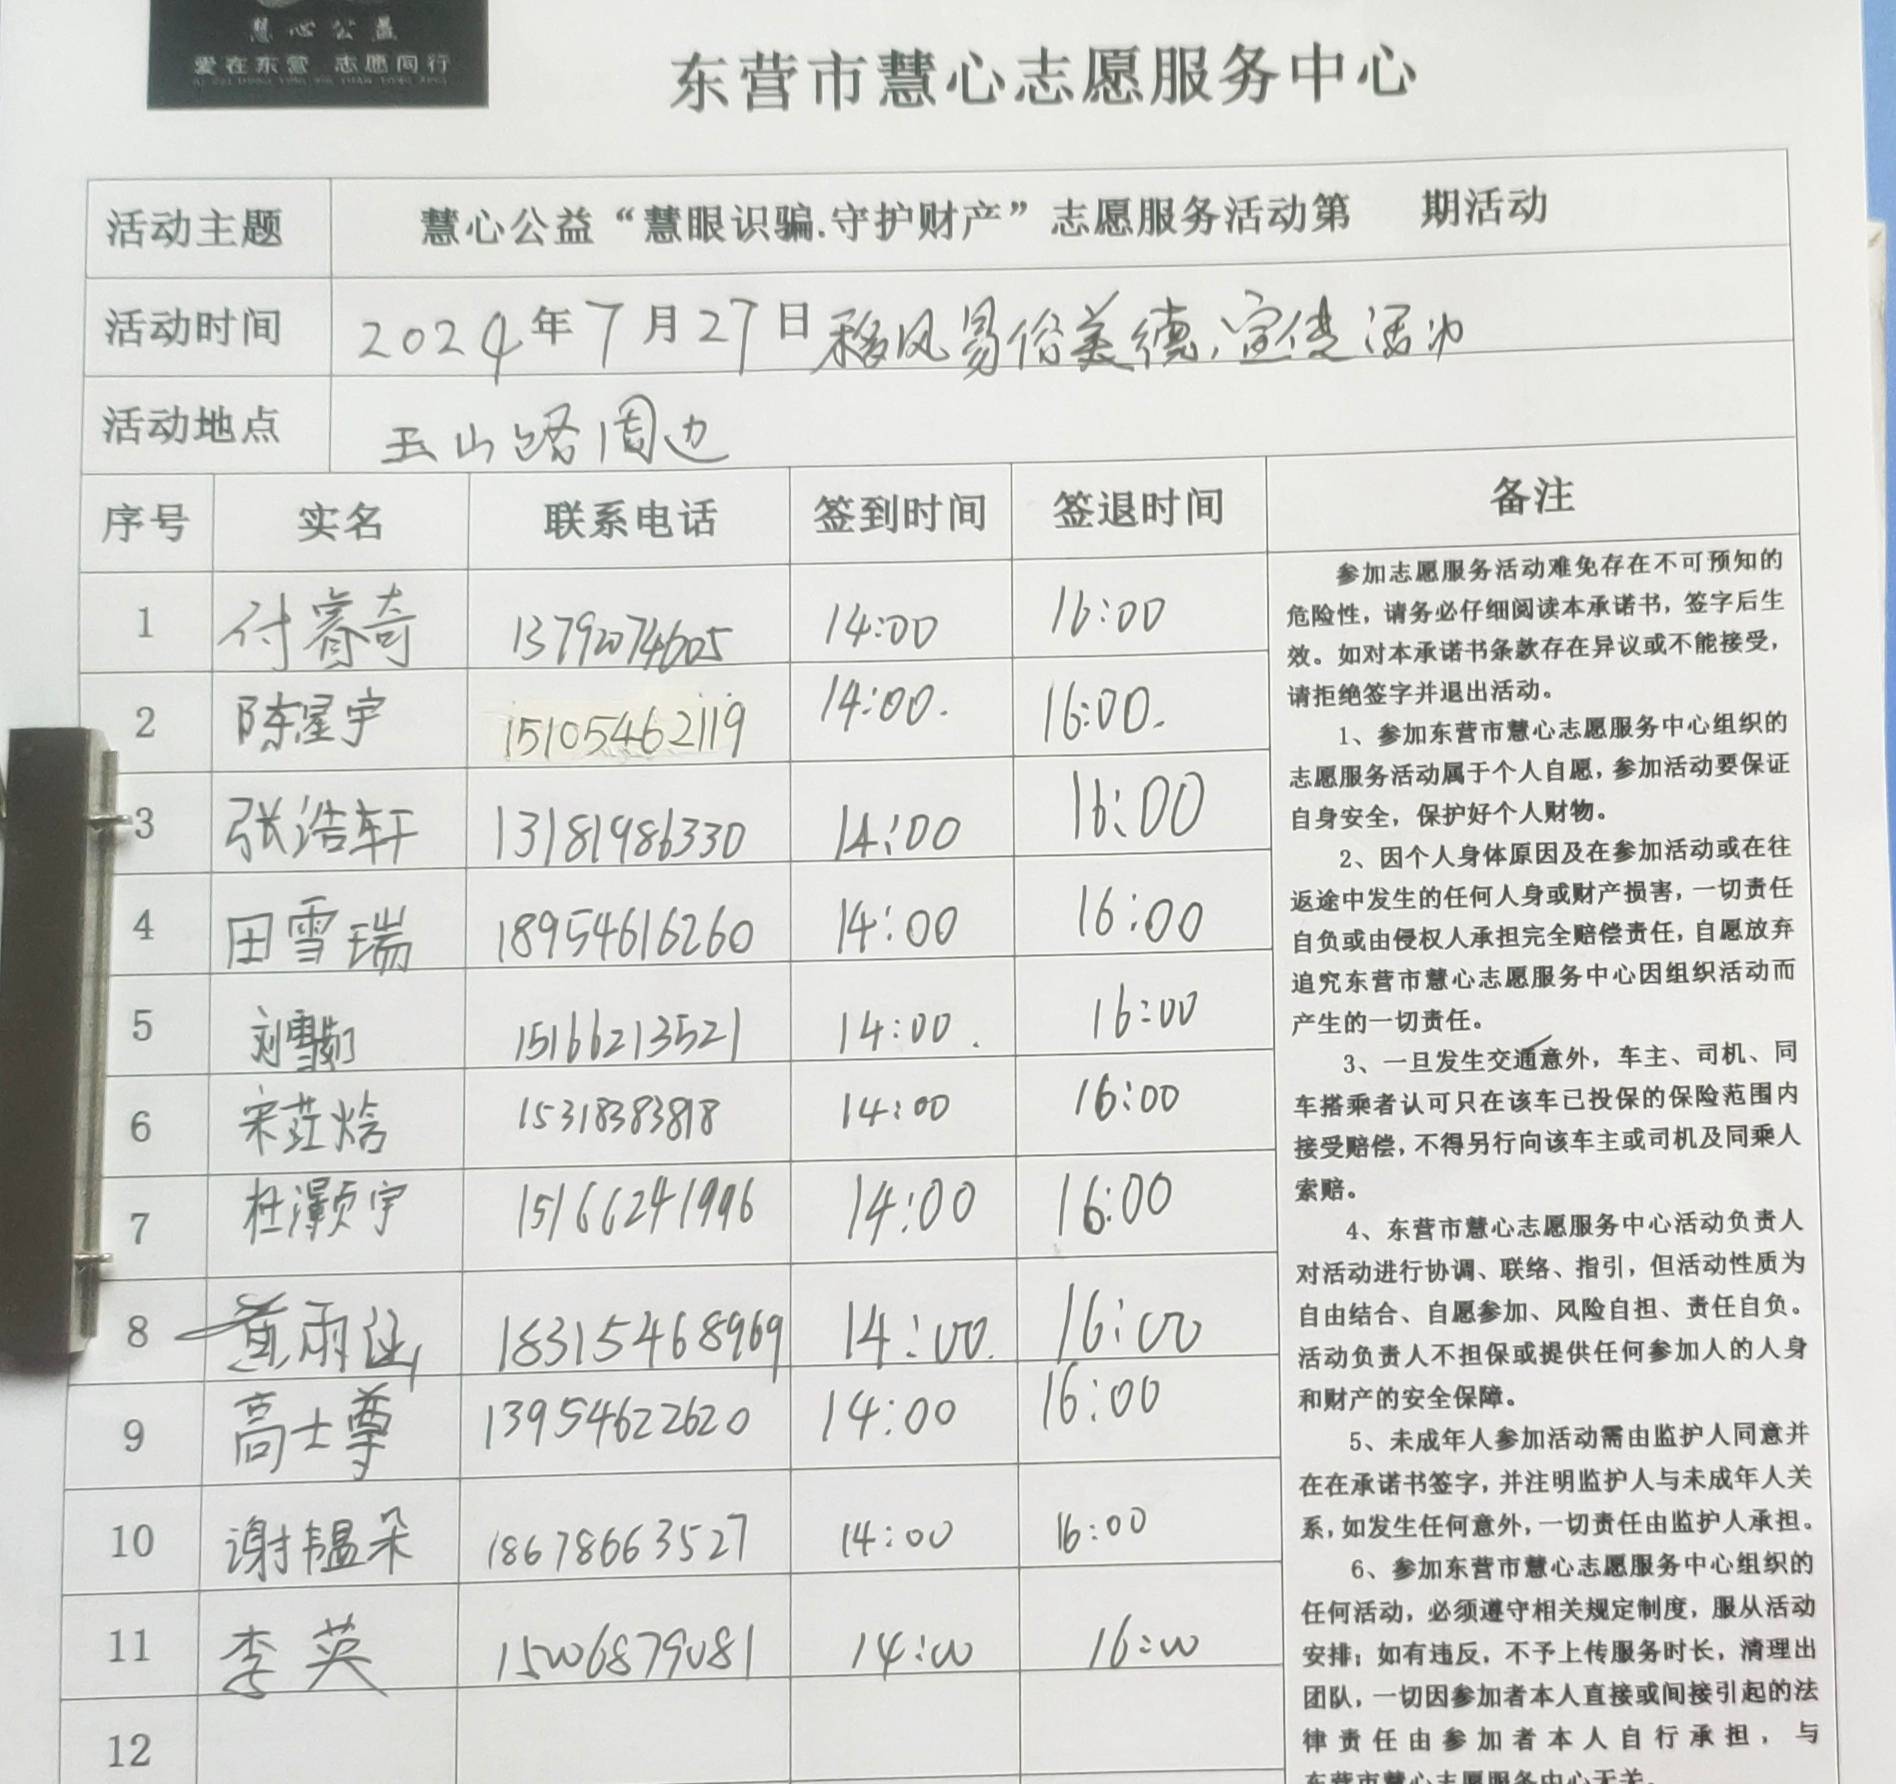 慧心公益
爱在东营 志愿同行
东营市慧心志愿服务中心
活动主题 慧心公益“慧眼识骗.守护财产”志愿服务活动第 期活动
活动时间 2024年7月27日移风易俗美德,宣传活动
活动地点 玉山路周边
序号 实名 联系电话 签到时间 签退时间 备注
1 付睿奇 13792074605 14:00 16:00
2 陈星宇 15105462119 14:00. 16:00.
3 张浩轩 13181986330 14:00 16:00
4 田雪瑞 18954616260 14:00 16:00
5 刘雪 15166213521 14:00. 16:00
6 宋 焓 15318383818 14:00 16:00
7 杜灏宇 15166241996 14:00 16:00
8 黄雨涵 18315468969 14:00. 16:00
9 高士尊 13954622620 14:00 16:00
10 谢韫朵 18678663527 14:00 16:00
11 李英 15006879081 14:00 16:00
12
参加志愿服务活动难免存在不可预知的
危险性，请务必仔细阅读本承诺书，签字后生
效。如对本承诺书条款存在异议或不能接受，
请拒绝签字并退出活动。
1、参加东营市慧心志愿服务中心组织的
志愿服务活动属于个人自愿，参加活动要保证
自身安全，保护好个人财物。
2、因个人身体原因及在参加活动或在往
返途中发生的任何人身或财产损害，一切责任
自负或由侵权人承担完全赔偿责任，自愿放弃
追究东营市慧心志愿服务中心因组织活动而
产生的一切责任。
3、一旦发生交通意外，车主、司机、同
车搭乘者认可只在该车已投保的保险范围内
接受赔偿，不得另行向该车主或司机及同乘人
索赔。
4、东营市慧心志愿服务中心活动负责人
对活动进行协调、联络、指引，但活动性质为
自由结合、自愿参加、风险自担、责任自负。
活动负责人不担保或提供任何参加人的人身
和财产的安全保障。
5、未成年人参加活动需由监护人同意并
在在承诺书签字，并注明监护人与未成年人关
系，如发生任何意外，一切责任由监护人承担。
6、参加东营市慧心志愿服务中心组织的
任何活动，必须遵守相关规定制度，服从活动
安排；如有违反，不予上传服务时长，清理出
团队，一切因参加者本人直接或间接引起的法
律责任由参加者本人自行承担，与
东营市慧心志愿服务中心无关。